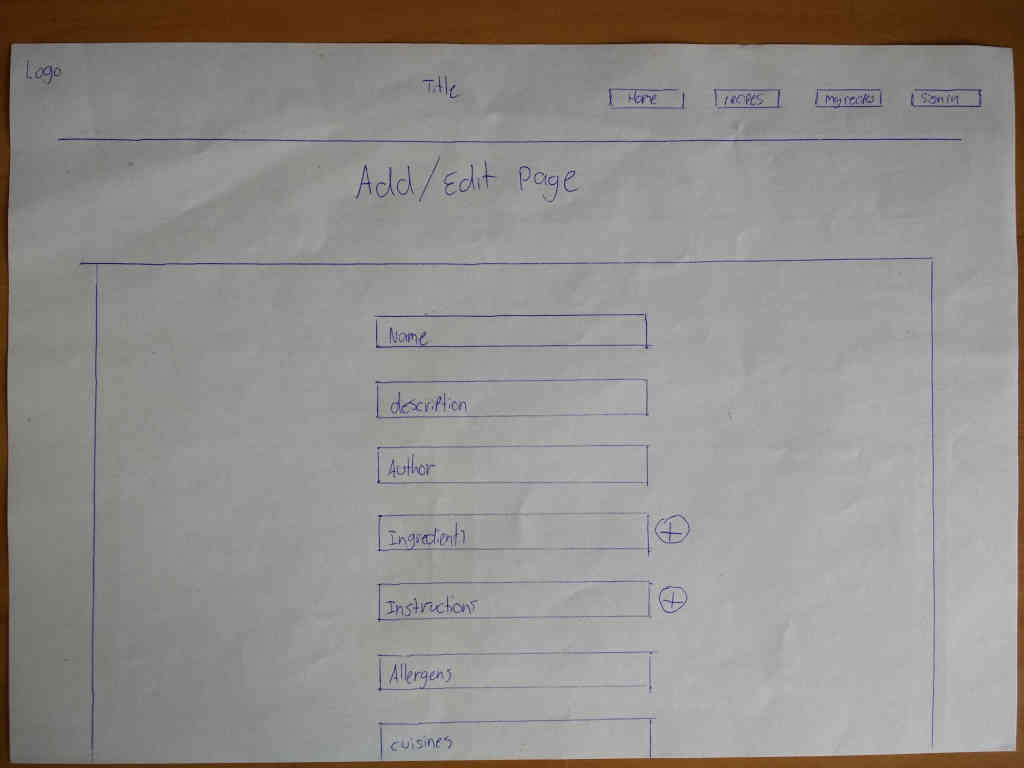 Logo
Title
Home
recipes
my recipes
Sign in
Add/Edit Page
Name
description
Author
Ingredient1
Instructions
Allergens
cuisines